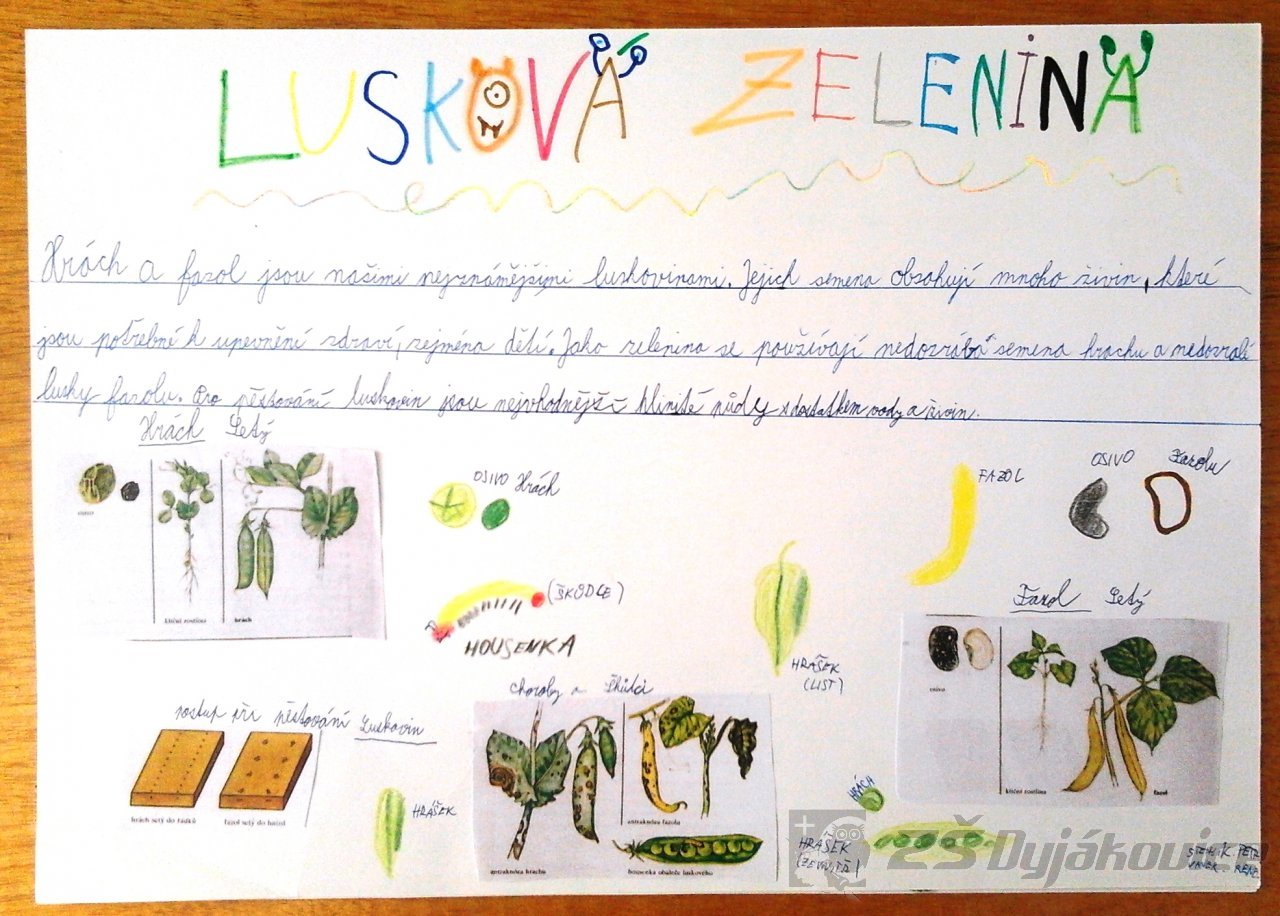 LUSKOVÁ ZELENINA
Hrách a fazol jsou našimi nejznámějšími luskovinami. Jejich semena obsahují mnoho živin, které
jsou potřebné k upevnění zdraví, zejména dětí. Jako zelenina se používají nedozrálá semena hrachu a nedozralé
lusky fazolu. Pro pěstování luskovin jsou nejvhodnější hlinité půdy s dostatkem vody a živin.
Hrách Setý
osivo
klíční rostlina
hrách
OSIVO Hrách
FAZOL
OSIVO Fazolu
(ŠKŮDCE)
HOUSENKA
HRÁŠEK
(LIST)
Fazol Setý
osivo
klíční rostlina
fazol
Postup při pěstování Luskovin
hrách setý do řádků
fazol setý do hnízd
HRÁŠEK
Choroby a Škůdci
antraknóza hrachu
antraknóza fazolu
housenka obaleče luskového
HRÁCH
HRÁŠEK
(ZEVNITŘ)
ZŠ Dyjákovice